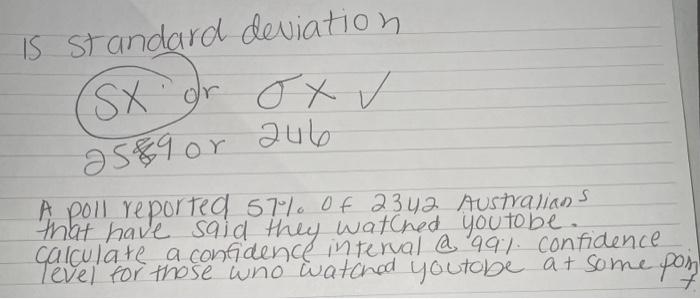 is standard deviation
SX or σx ✓
2589 or 246
A poll reported 57% of 2342 Australians
that have said they watched youtobe.
calculate a confidence interval @ 99% confidence
level for those who watched youtobe at some point